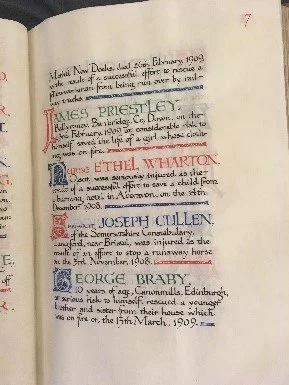 7
Methil New Docks, died 26th February, 1909
as the result of a successful effort to rescue a
fellow workman from being run over by rail-
way trucks.
JAMES PRIESTLEY.
Ballyroney, Banbridge, Co. Down, on the
3rd February, 1909 at considerable risk to
himself saved the life of a girl whose cloth-
ing was on fire.
NURSE ETHEL WHARTON.
Calcutt, was seriously injured as the re-
sult of a successful effort to save a child from
burning hotel in on the 12th
December 1908.
SERGEANT JOSEPH CULLEN.
of the Somersetshire Constabulary,
Langford, near Bristol, was injured as the
result of an effort to stop a runaway horse
on the 3rd November, 1908.
GEORGE BRABY.
10 years of age, Canonmills, Edinburgh,
at serious risk to himself, rescued a younger
brother and sister from their house which
was on fire on the 15th March, 1909.